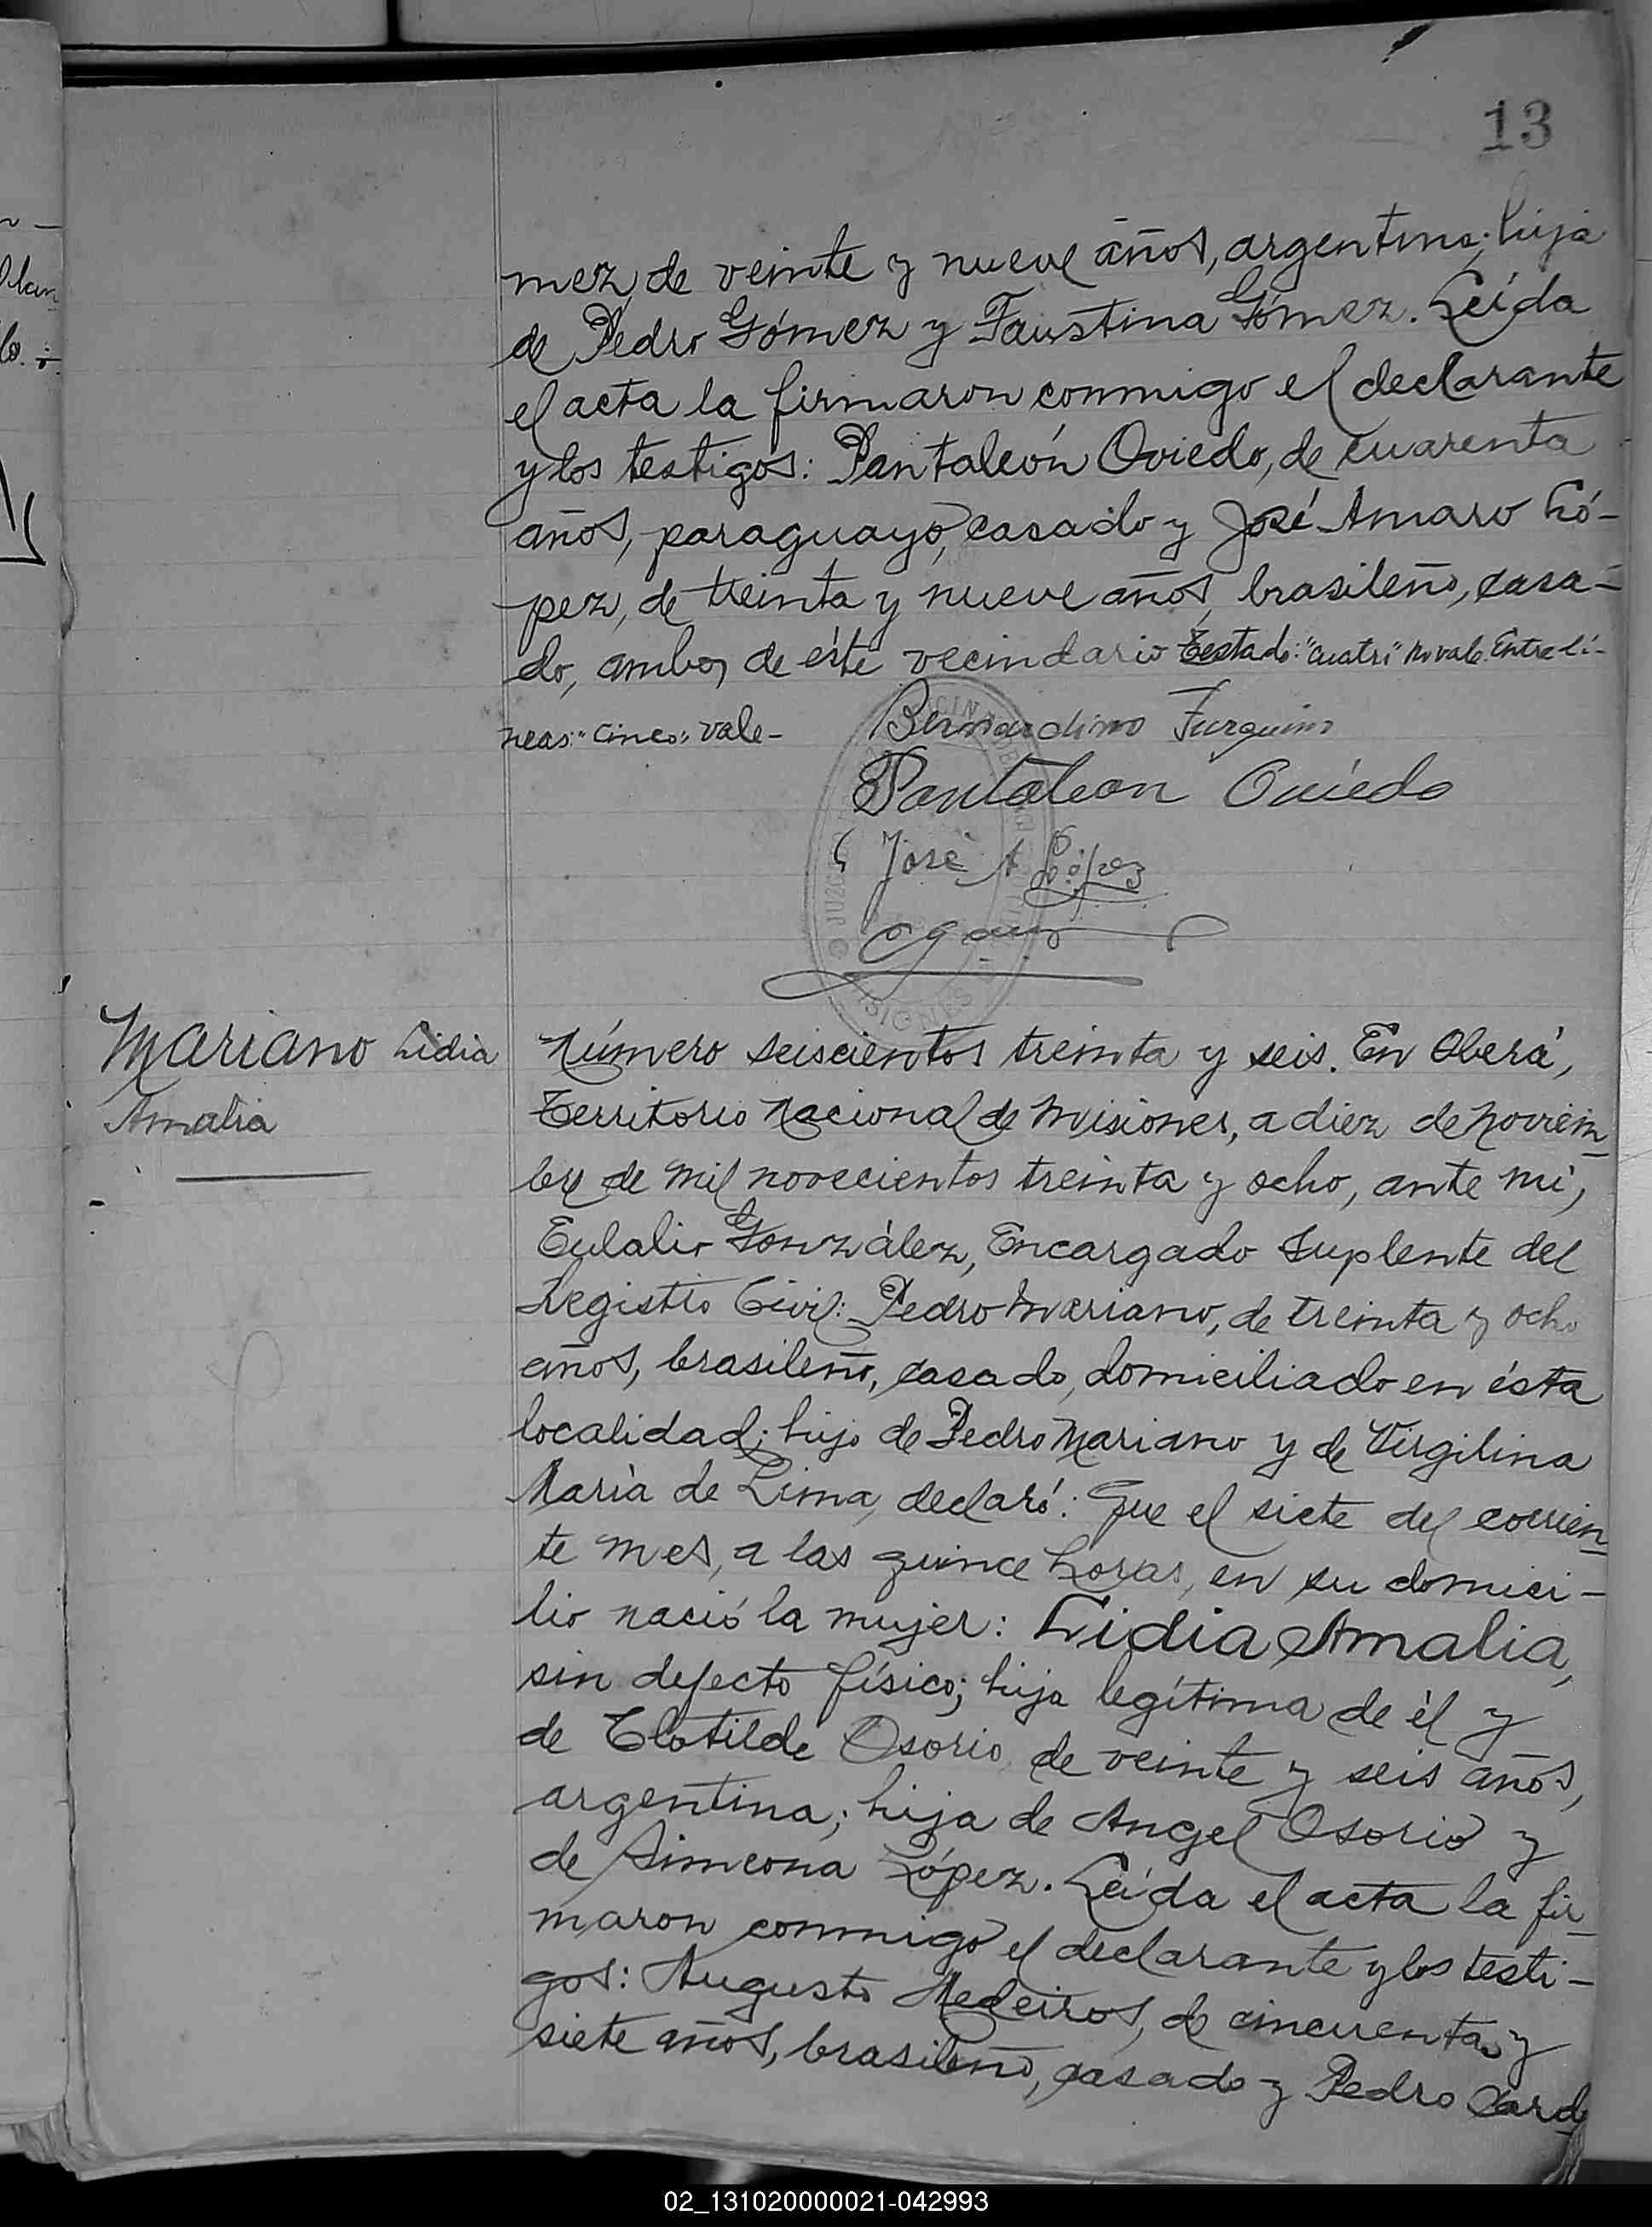 13
mez, de veinte y nueve años, argentina; hija
de Pedro Gómez y Faustina Gómez. Leída
el acta la firmaron conmigo el declarante
y los testigos: Pantaleón Oviedo, de cuarenta
años, paraguayo, casado y José Amaro Ló-
pez, de treinta y nueve años, brasileño, casa-
do, ambos de éste vecindario Testado: "cuatro" no vale. Entre lí-
neas: "cinco": vale-
Bernardino Furquim
Pantaleon Oviedo
José A López
Mariano Lidia
Amalia
Número seiscientos treinta y seis. En Oberá,
Territorio Nacional de Misiones, a diez de Noviem
bre de mil novecientos treinta y ocho, ante mí,
Eulalio González, Encargado Suplente del
Registro Civil: Pedro Mariano, de treinta y ocho
años, brasileño, casado, domiciliado en ésta
localidad; hijo de Pedro Mariano y de Virgilina
María de Lima, declaró: Que el siete del corrien
te mes, a las quince horas, en su domici-
lio nació la mujer: Lidia Amalia,
sin defecto físico; hija legítima de él y
de Clotilde Osorio, de veinte y seis años,
argentina; hija de Angel Osorio y
de Simeona López. Leída el acta la fir
maron conmigo el declarante y los testi-
gos: Augusto Medeiros, de cincuenta y
siete años, brasileño, casado y Pedro Card
02_131020000021-042993